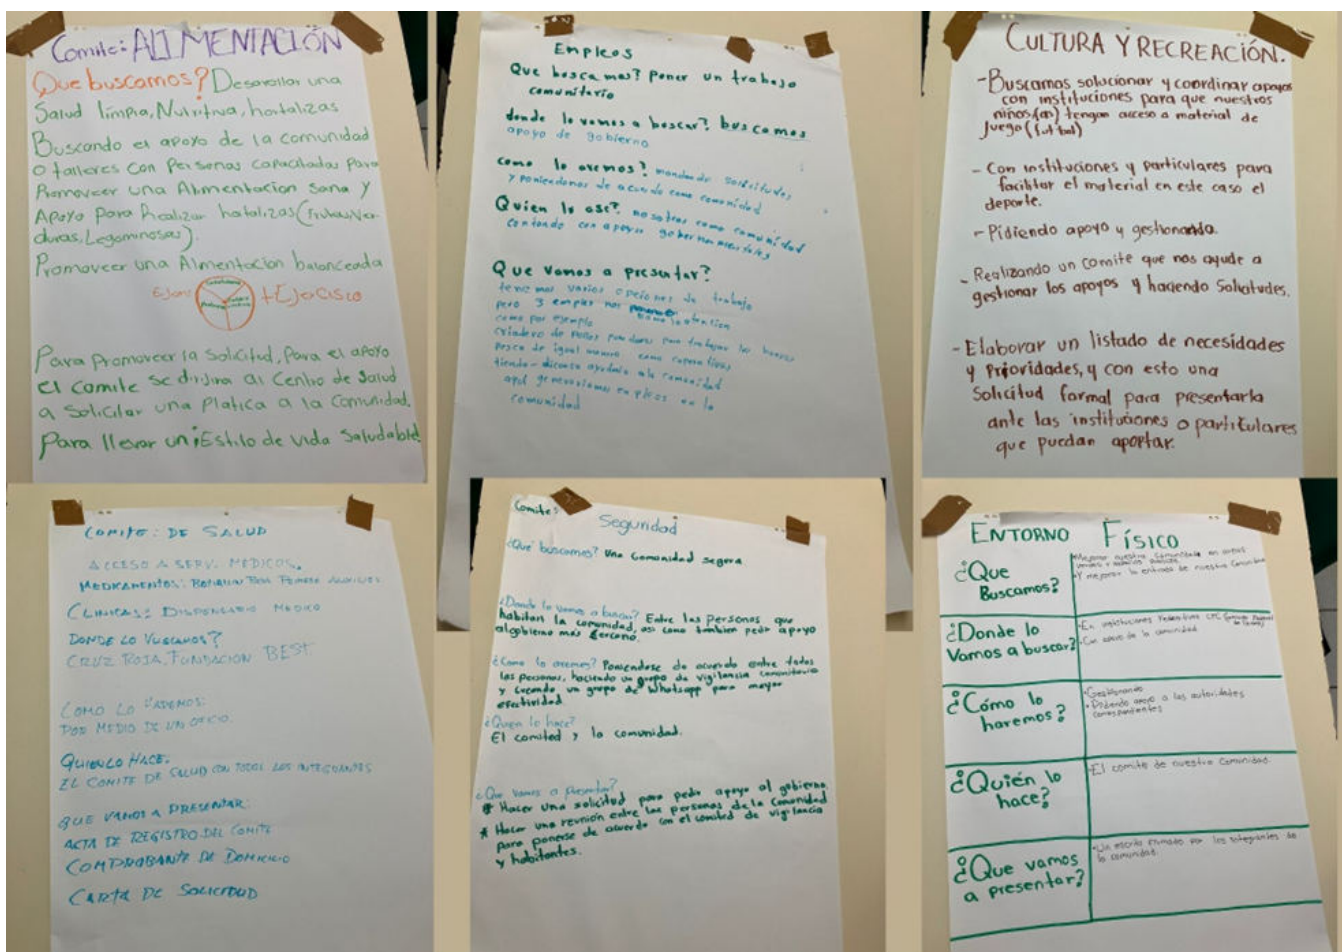 Comite: ALIMENTACIÓN
Que buscamos? Desarrollar una
Salud limpia, Nutritiva, hortalizas
Buscando el apoyo de la comunidad
o talleres con Personas capacitadas Para
Promoveer una Alimentacion Sana y
Apoyo Para Realizar hotalizas (Frutas, Ver-
duras, Legominosas).
Promoveer una Alimentacion balanceada
+ Ejocisio
Para promoveer la Solicitud, Para el apoyo
el Comite se dirijira al Centro de Salud
a Solicitar una Platica a la Comunidad.
Para llevar un Estilo de vida Saludable!
Enpleos
Que bosca mos? Poner un trabajo
comunitario
donde lo vamos a boscar? buscamos
apoyo de gobierno
como lo aremos? mandando solicitudes
y poniendonos de acuerdo como comunidad
Quien lo ase? nosotros como comunidad
contando con apoyos gobernamentales
Que vamos a presentar?
tenemos varias opciones de trabajo
pero 3 emples nos la atencion
como por ejemplo
criadero de pollos para trabajar
pesca de igual manera como
tienda - diconsa ayudaria a la comunidad
en pleos en la
comunidad
CULTURA Y RECREACIÓN.
- Buscamos solucionar y coordinar apoyos
con instituciones para que nuestros
niños(as) tengan acceso a material de
Juego (futbol)
- Con instituciones y particulares para
facilitar el material en este caso el
deporte.
- Pidiendo apoyo y gestionando.
- Realizando un comite que nos ayude a
gestionar los apoyos y haciendo Solicitudes.
- Elaborar un listado de necesidades
y Prioridades, y con esto una
Solicitud formal para presentarla
ante las instituciones o particulares
que puedan aportar.
COMITE: DE SALUD
ACCESO A SERV. MEDICOS.
MEDICAMENTOS: BOTIQUIN PARA PRIMEROS AUXILIOS
CLINICAS: DISPENSARIO MEDICO
DONDE LO VUSCAMOS?
CRUZ ROJA, FUNDACION BEST
COMO LO VAREMOS:
POR MEDIO DE UN OFICIO
QUIEN LO HACE:
EL COMITE DE SALUD CON TODOS LOS INTEGRANTES
QUE VAMOS A PRESENTAR:
ACTA DE REGISTRO DEL COMITE
COMPROBANTE DE DOMICILIO
CARTA DE SOLICITUD
Comite:
Seguridad
¿Qué buscamos? Una Comunidad segera
¿Donde lo vamos a buscar? Entre las Personas que
habitan la comunidad, asi como tambien pedir apoyo
al gobierno más cercano.
¿Como lo aremos? Poniendose de acuerdo entre todas
las personas, haciendo un grupo de vigilancia comunitaria
y creando un grupo de Whatsapp para mayor
efectividad
¿Quien lo hace?
El comited y la comunidad.
¿Que vamos a presentar?
* Hacer una solicitud para pedir apoyo al gobierno
* Hacer una reunión entre las personas de la comunidad
para ponerse de acuerdo con el comited de vigilancia
y habitantes.
ENTORNO FÍSICO
¿Que
Buscamos?
Mejorar nuestra Comunidad en areas
verdes y
Y mejorar la entrada de nuestra Comunidad
¿Donde lo
Vamos a buscar?
En instituciones
Con apoyo de la comunidad
¿Cómo lo
haremos?
Gestionando
Pidiendo apoyo a las autoridades
correspondientes
¿Quién lo
hace?
El comite de nuestra Comunidad.
¿Que vamos
a presentar?
Un escrito firmado por los integrantes de
la comunidad.